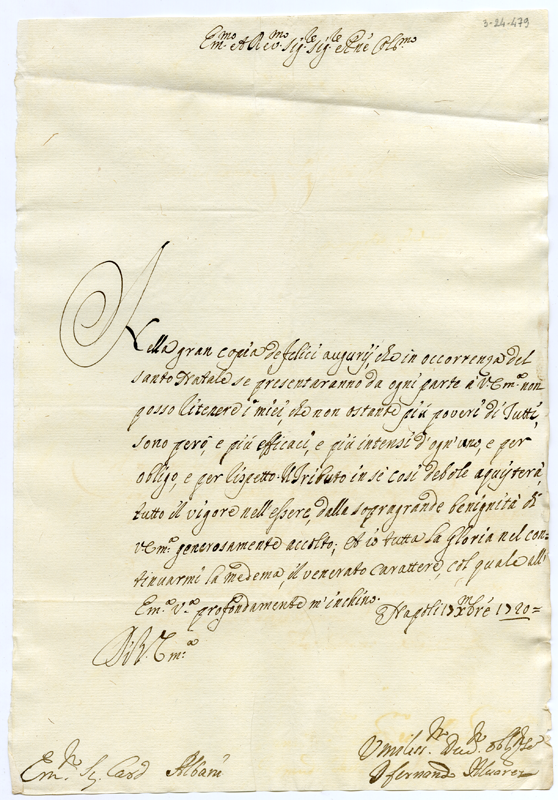 3-24-479
Em.mo e Rev.mo Sig.re Sig.re e Pne Col.mo
Nella gran copia de felici augurij che in occorrenza del
santo Natale se presentaranno da ogni parte à V Em.a non
posso litenere i miei, che non ostante più poveri di Tutti,
sono però, e più efficaci, e più intensi d'ogn'uno, e per
obligo, e per lispetto. Il Tributo in sè così debole aquisterà,
tutto il vigore nell'essere, dalla sopragrande benignità di
V Em.a generosamente accolto; Et io tutta la Gloria nel con
tinuarmi la medema, il venerato Carattere, col quale all'
Em.a V.a profondamente m'inchino.
Napoli Xmbre 1720=
Di V. Em.a
Em.o Sig. Card Albani
Umiliss.o Dev.o
Fernand Alvarez